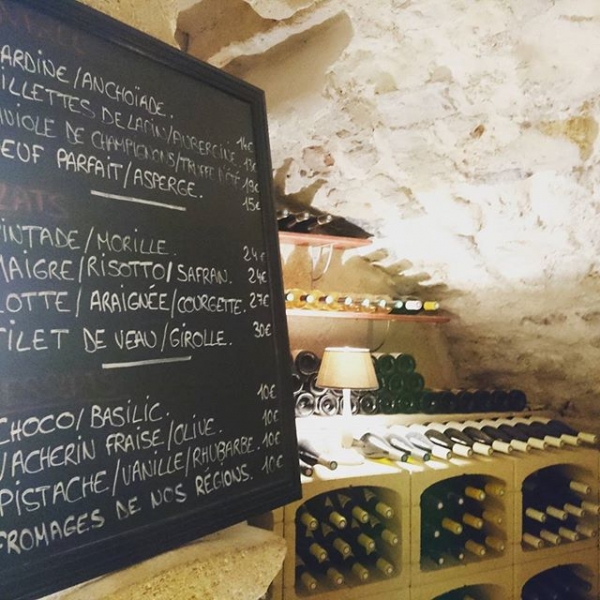 ARDINE/ANCHOÏADE. 14€
ILLETTES DE LAPIN/AUBERGINE. 17€
VIOLE DE CHAMPIGNONS/TRUFFE D'ÉTÉ 19€
EUF PARFAIT/ASPERGE. 15€
LATS
INTADE/MORILLE. 24€
AIGRE/RISOTTO/SAFRAN. 24€
LOTTE/ARAIGNÉE/COURGETTE. 27€
FILET DE VEAU/GIROLLE. 30€
CHOCO/BASILIC. 10€
VACHERIN FRAISE/OLIVE. 10€
PISTACHE/VANILLE/RHUBARBE. 10€
FROMAGES DE NOS RÉGIONS. 10€